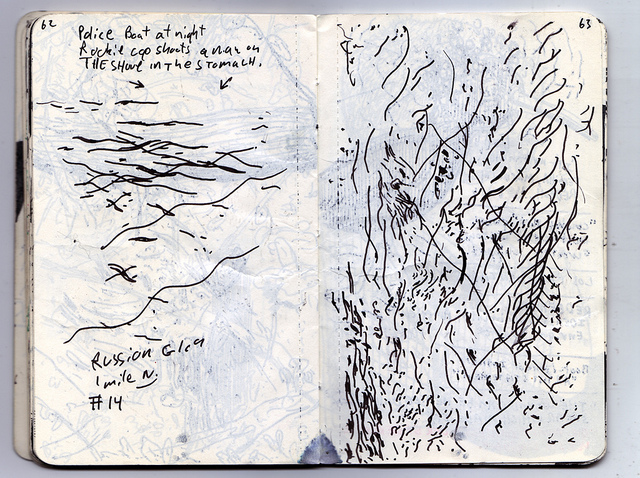 62
Police Boat at night
Rookie cop shoots a man on
THE SHORE in THE STOMACH.
Russian
1 mile N
#14
63